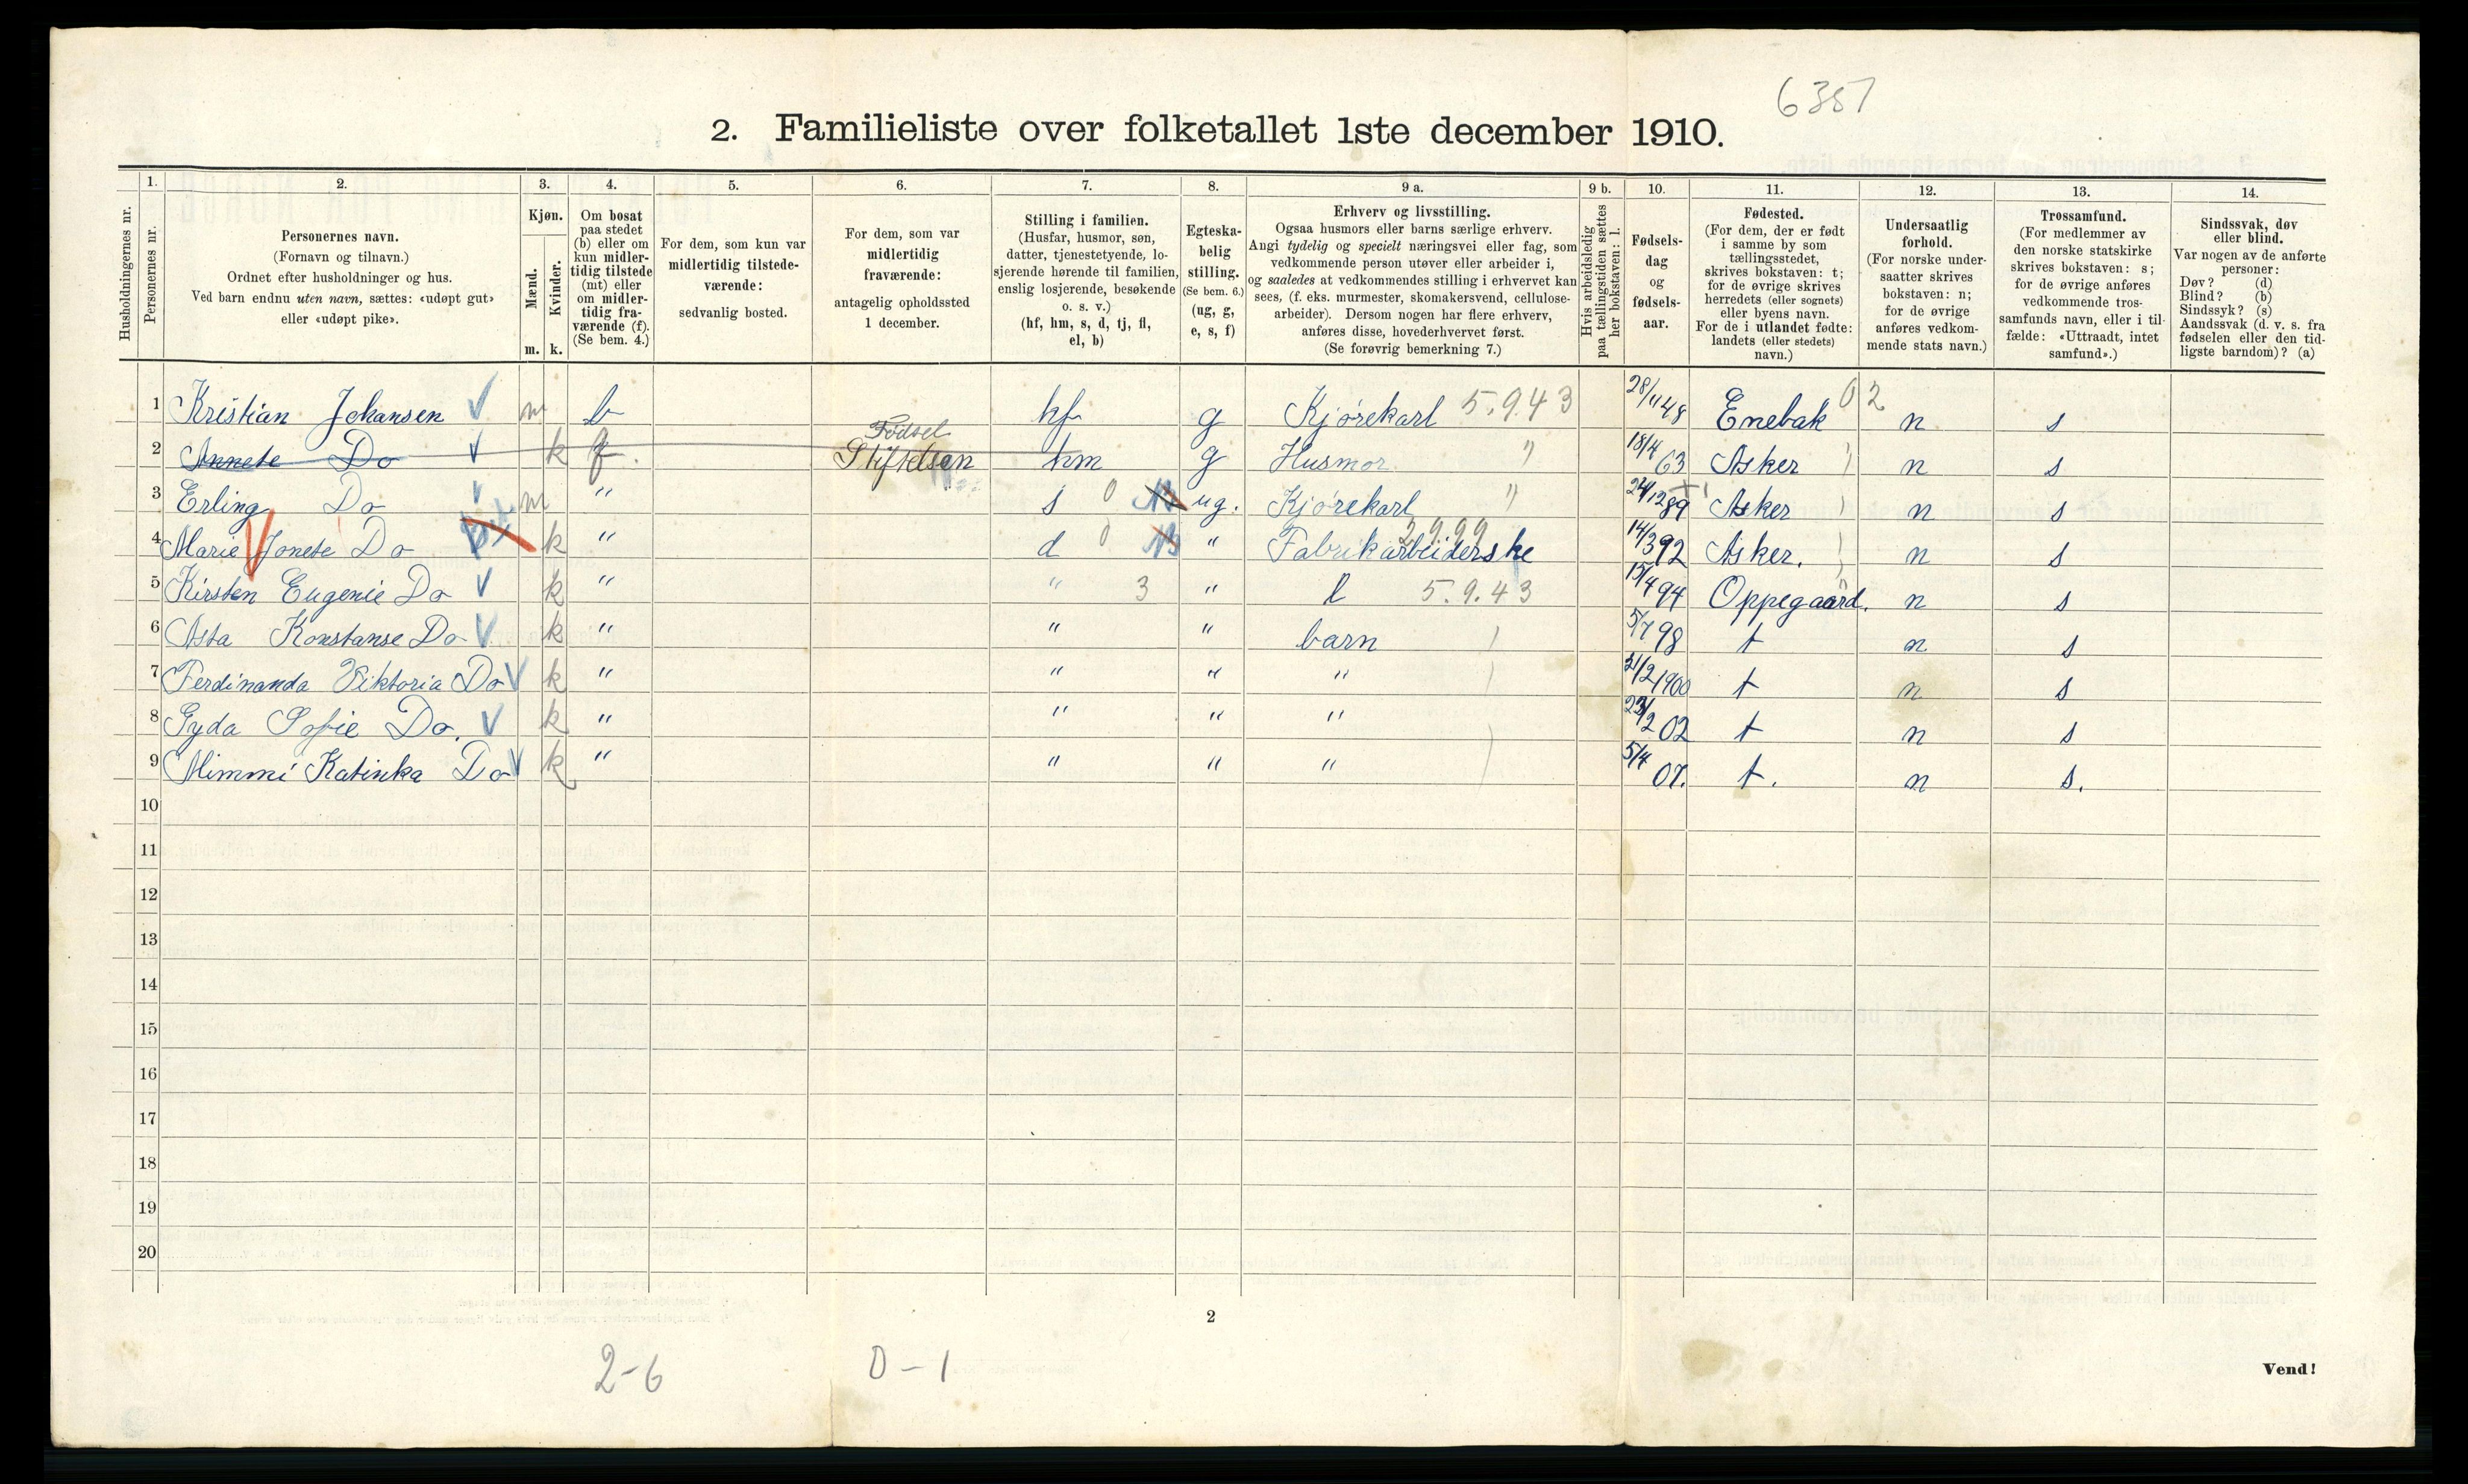 6357
2. Familieliste over folketallet 1ste december 1910.
Husholdningernes nr.
1. Personernes nr.
2. Personernes navn. (Fornavn og tilnavn.) Ordnet efter husholdninger og hus. Ved barn endnu uten navn, sættes: «udøpt gut» eller «udøpt pike».
3. Kjøn. Mænd. m. Kvinder. k.
4. Om bosat paa stedet (b) eller om kun midlertidig tilstede (mt) eller om midlertidig fraværende (f). (Se bem. 4.)
5. For dem, som kun var midlertidig tilstedeværende: sedvanlig bosted.
6. For dem, som var midlertidig fraværende: antagelig opholdssted 1 december.
7. Stilling i familien. (Husfar, husmor, søn, datter, tjenestetyende, losjerende hørende til familien, enslig losjerende, besøkende o. s. v.) (hf, hm, s, d, tj, fl, el, b)
8. Egteskabelig stilling. (Se bem. 6.) (ug, g, e, s, f)
9 a. Erhverv og livsstilling. Ogsaa husmors eller barns særlige erhverv. Angi tydelig og specielt næringsvei eller fag, som vedkommende person utøver eller arbeider i, og saaledes at vedkommendes stilling i erhvervet kan sees, (f. eks. murmester, skomakersvend, cellulosearbeider). Dersom nogen har flere erhverv, anføres disse, hovederhvervet først. (Se forøvrig bemerkning 7.)
9 b. Hvis arbeidsledig paa tællingstiden sættes her bokstaven: l.
10. Fødselsdag og fødselsaar.
11. Fødested. (For dem, der er født i samme by som tællingsstedet, skrives bokstaven: t; for de øvrige skrives herredets (eller sognets) eller byens navn. For de i utlandet fødte: landets (eller stedets) navn.)
12. Undersaatlig forhold. (For norske undersaatter skrives bokstaven: n; for de øvrige anføres vedkommende stats navn.)
13. Trossamfund. (For medlemmer av den norske statskirke skrives bokstaven: s; for de øvrige anføres vedkommende trossamfunds navn, eller i tilfælde: «Uttraadt, intet samfund».)
14. Sindssvak, døv eller blind. Var nogen av de anførte personer: Døv? (d) Blind? (b) Sindssyk? (s) Aandssvak (d. v. s. fra fødselen eller den tidligste barndom)? (a)
1 Kristian Johansen m b hf g Kjørekarl 5.9.43 28/11 48 Enebak 02 n s
2 Annete Do k f. Fødsel Stiftelsen hm g Husmor " 18/4 63 Asker n s
3 Erling Do m " s 0 ug. Kjørekarl " 24/12 89 Asker n s
4 Marie Jonete Do k " d 0 " Fabrikarbeiderske 2.9.99 14/3 92 Asker. n s
5 Kirsten Eugenie Do k " " 3 " l 5.9.43 15/4 94 Oppegaard. n s
6 Asta Konstanse Do k " " " barn 5/7 98 t n s
7 Ferdinanda Viktoria Do k " " " " 21/2 1900 t n s
8 Gyda Sofie Do. k " " " " 23/2 02 t n s
9 Mimmi Katinka Do k " " " " 5/4 07. t. n s.
10
11
12
13
14
15
16
17
18
19
20
2
2-6 0-1
Vend!